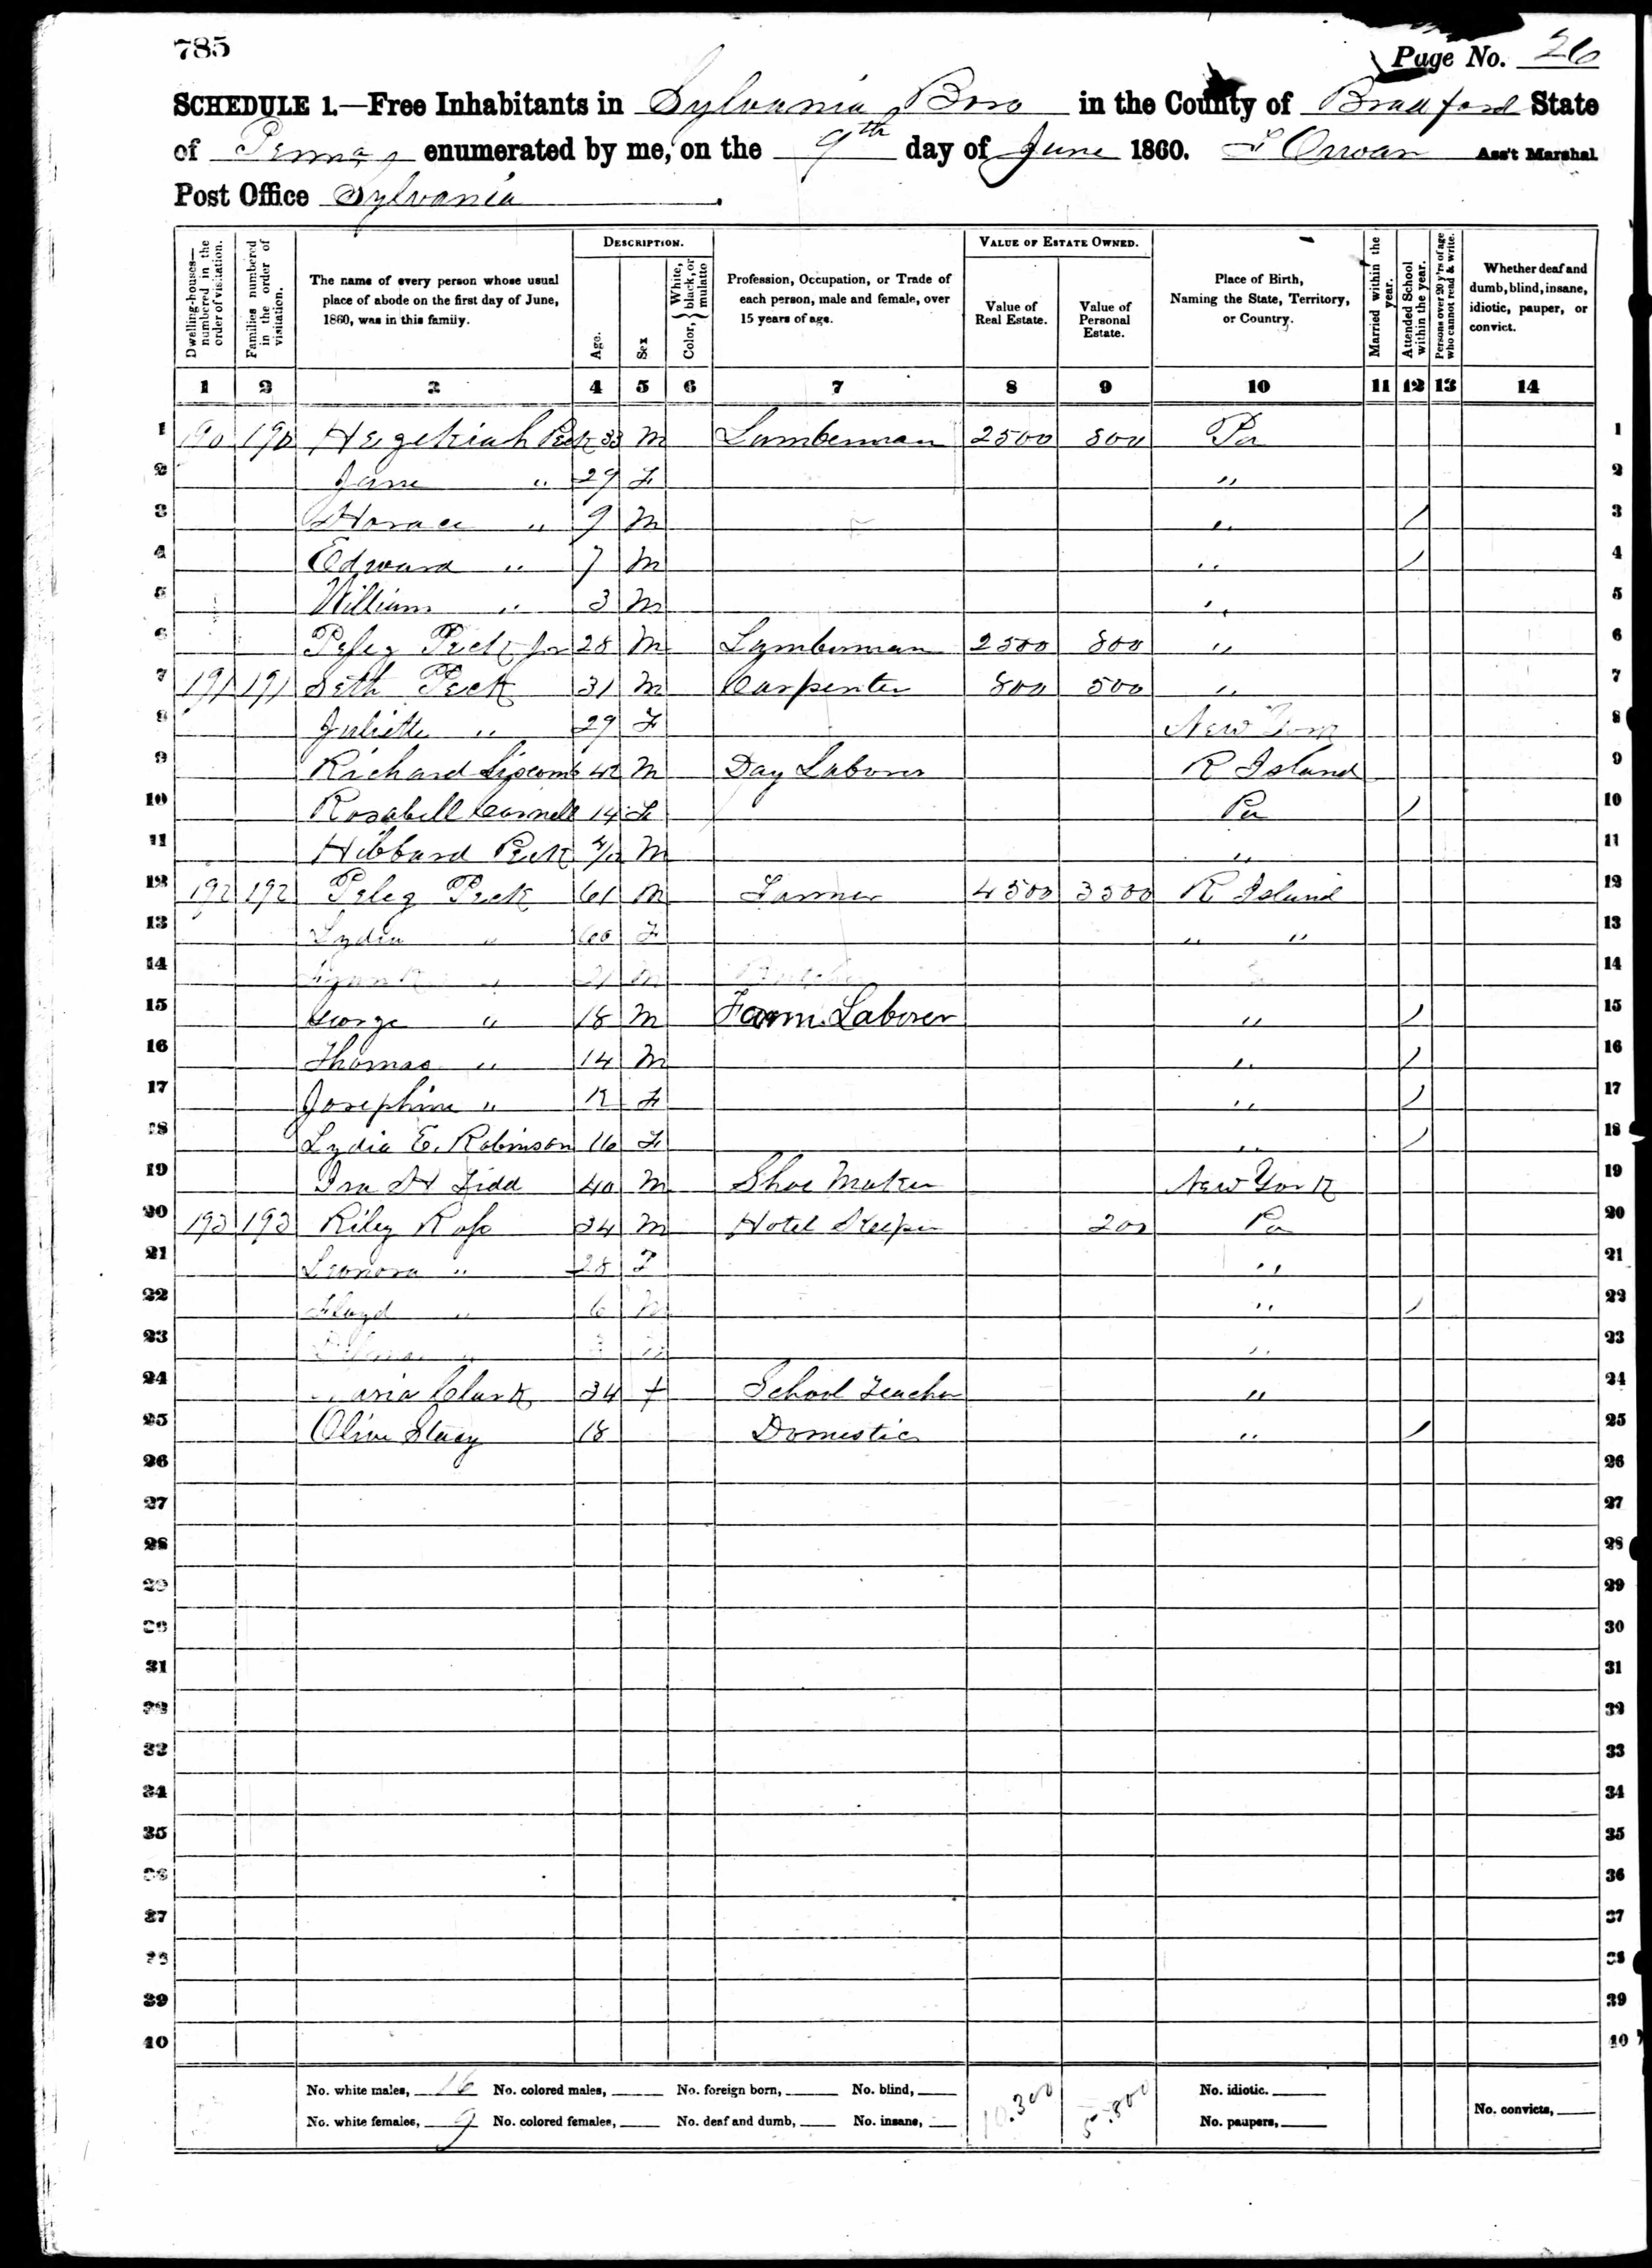 785
Page No. 26
SCHEDULE 1.—Free Inhabitants in Sylvania Boro in the County of Bradford State
of Penna enumerated by me, on the 9th day of June 1860. Orwan Ass't Marshal.
Post Office Sylvania.
Dwelling-houses—numbered in the order of visitation.
Families numbered in the order of visitation.
The name of every person whose usual place of abode on the first day of June, 1860, was in this family.
DESCRIPTION.
Age.
Sex
Color, White, black, or mulatto
Profession, Occupation, or Trade of each person, male and female, over 15 years of age.
VALUE OF ESTATE OWNED.
Value of Real Estate.
Value of Personal Estate.
Place of Birth, Naming the State, Territory, or Country.
Married within the year.
Attended School within the year.
Persons over 20 y'rs of age who cannot read & write.
Whether deaf and dumb, blind, insane, idiotic, pauper, or convict.
1 2 3 4 5 6 7 8 9 10 11 12 13 14
1 190 190 Hezekiah Peck 33 M Lumberman 2500 800 Pa 1
2 Jane " 29 F " 2
3 Horace " 9 M " / 3
4 Edward " 7 M " / 4
5 William " 3 M " 5
6 Peleg Peck Jr 28 M Lumberman 2500 800 " 6
7 191 191 Seth Peck 31 M Carpenter 800 500 " 7
8 Juliette " 29 F New York 8
9 Richard Lipcomb 42 M Day Laborer R Island 9
10 Rosabell Cornell 14 F Pa / 10
11 Hibbard Peck /12 M " 11
12 192 192 Peleg Peck 61 M Farmer 4500 3500 R Island 12
13 Lydia " 60 F " " 13
14 " 21 M 14
15 George " 18 M Farm Laborer " / 15
16 Thomas " 14 M " / 16
17 Josephine " 12 F " / 17
18 Lydia E. Robinson 16 F " / 18
19 Ira H Kidd 40 M Shoe Maker New York 19
20 193 193 Riley Rose 34 M Hotel Keeper 200 Pa 20
21 Leonora " 28 F " 21
22 Floyd " 6 M " / 22
23 " 3 " 23
24 Maria Clark 34 f School Teacher " 24
25 Olive Stacy 18 Domestic " / 25
26 26
27 27
28 28
29 29
30 30
31 31
32 32
33 33
34 34
35 35
36 36
37 37
38 38
39 39
40 40
No. white males, 16 No. colored males, No. foreign born, No. blind, 10.300 5.800 No. idiotic.
No. white females, 9 No. colored females, No. deaf and dumb, No. insane, No. paupers, No. convicts,